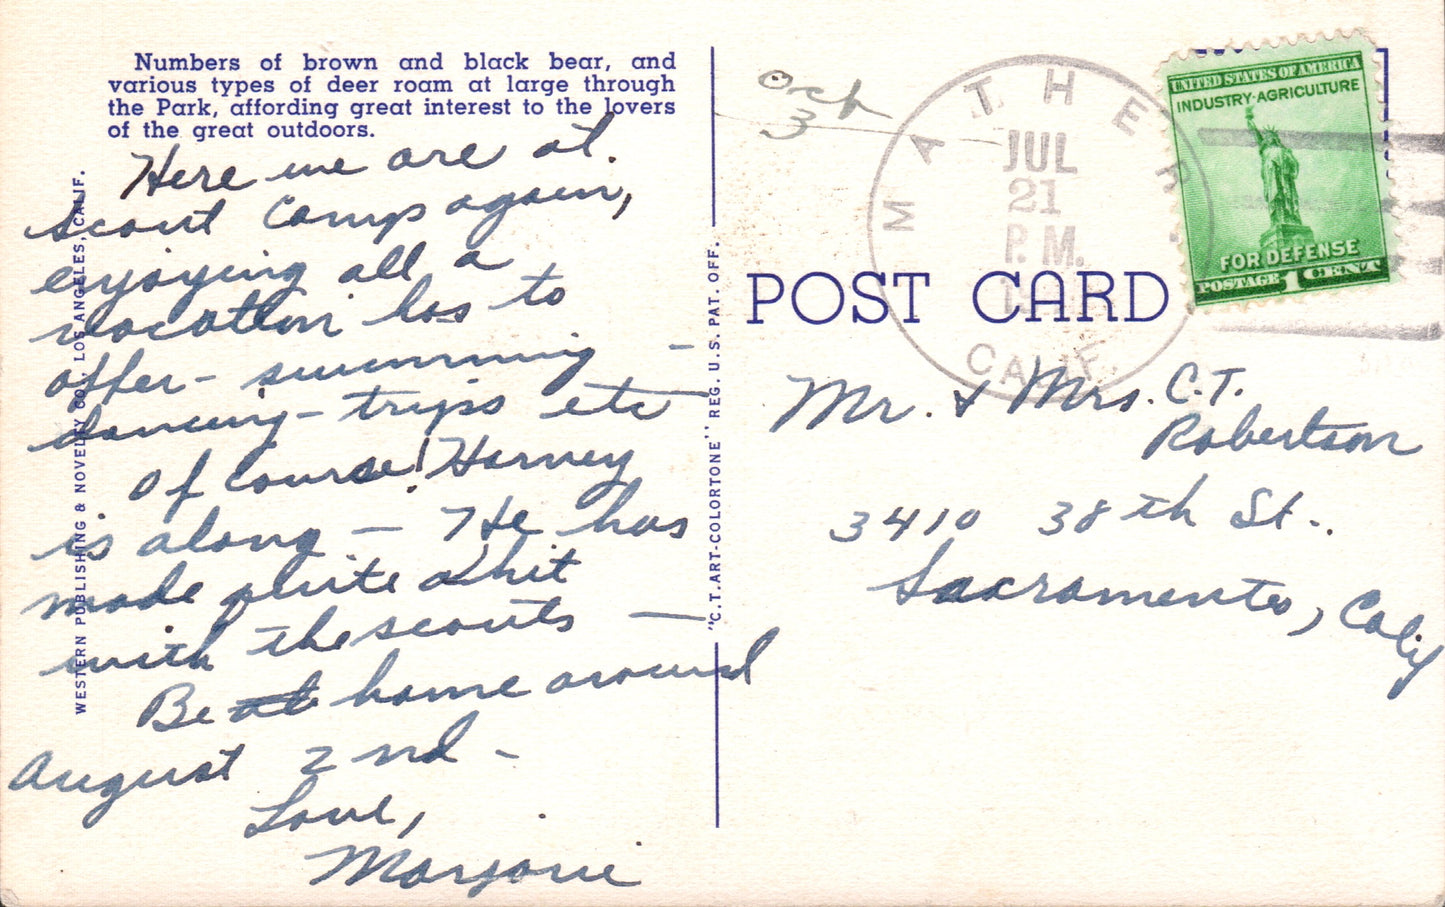 Numbers of brown and black bear, and
various types of deer roam at large through
the Park, affording great interest to the lovers
of the great outdoors.
Here we are at
Scout Camp again,
enjoying all a
vacation has to
offer - swimming -
dancing - trips etc -
Of course! Harvey
is along - He has
made quite a hit
with the scouts -
Be at home around
August 2nd -
Love,
Marjorie
WESTERN PUBLISHING & NOVELTY CO., LOS ANGELES, CALIF.
"C.T. ART-COLORTONE" REG. U.S. PAT. OFF.
3
MATHER
JUL
21
P.M.
CALIF.
UNITED STATES OF AMERICA
INDUSTRY·AGRICULTURE
FOR DEFENSE
POSTAGE 1 CENT
POST CARD
Mr. & Mrs. C.T.
Robertson
3410 38th St.
Sacramento, Calif